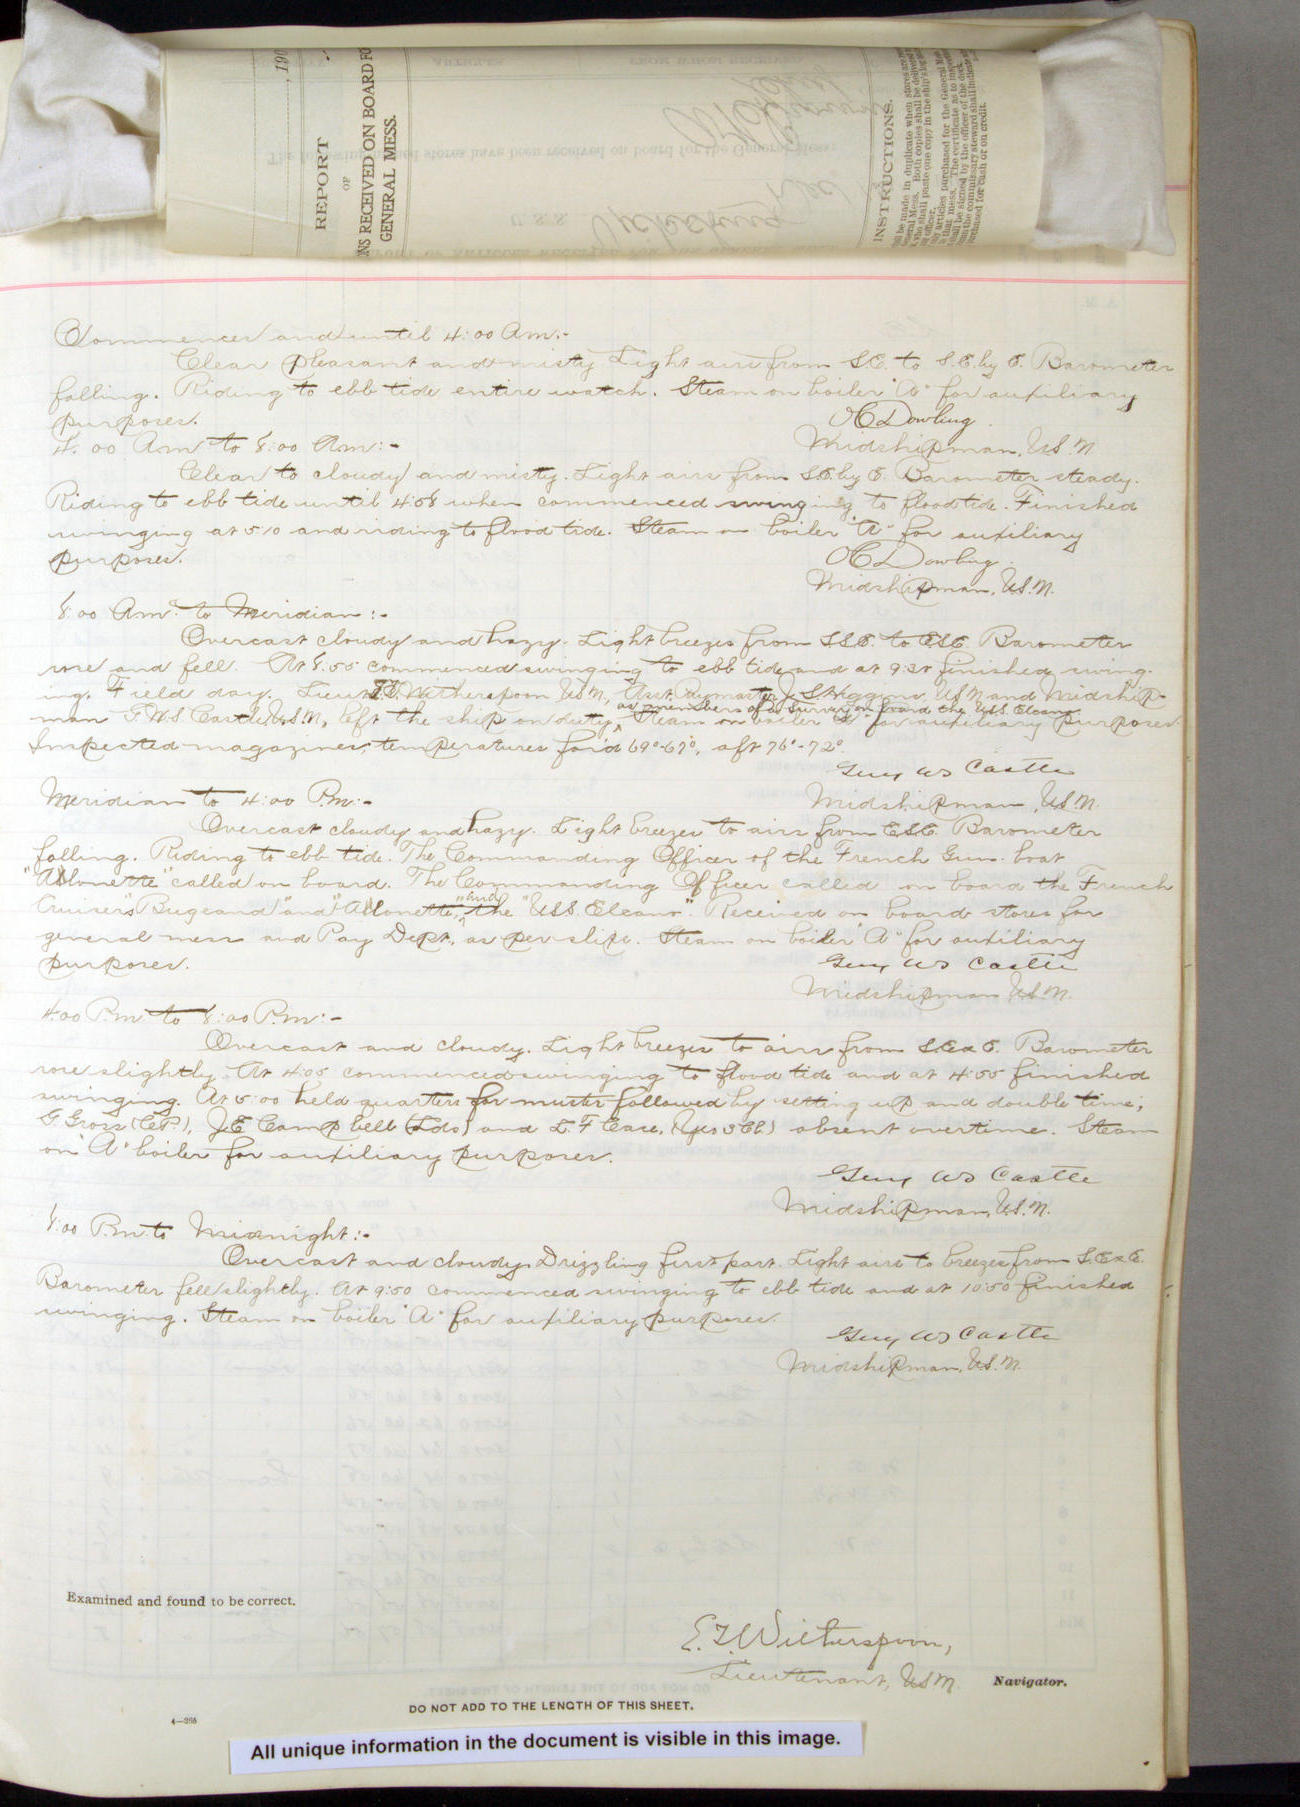 REPORT
OF
NS RECEIVED ON BOARD FO
GENERAL MESS.
, 190
INSTRUCTIONS.
Commences and until 4:00 Am:-
Clear pleasant and misty Light airs from S.E. to S.E. by E. Barometer
falling. Riding to ebb tide entire watch. Steam on boiler "A" for auxiliary
purposes.
Dowling
Midshipman, U.S.N.
4:00 Am to 8:00 Am:-
Clear to cloudy and misty. Light airs from S.E. by E. Barometer steady.
Riding to ebb tide until 4:08 when commenced swinging to flood tide. Finished
swinging at 5:10 and riding to flood tide. Steam on boiler "A" for auxiliary
purposes.
Dowling
Midshipman, U.S.N.
8:00 Am. to Meridian:-
Overcast cloudy and hazy. Light breezes from S.S.E. to E.S.E. Barometer
rose and fell. At 8:55 commenced swinging to ebb tide and at finished swing-
ing. Field day. Lieut E.T. Witherspoon U.S.N, Asst. Paymaster J S Higgins, U.S.N and Midship-
as members of a survey on board the U.S.S. Elcano
man G.W.S. Castle, U.S.N, left the ship on duty, Steam on boiler "A" for auxiliary purposes
Inspected magazines, temperatures for'd 69°-67°, aft 76°-72°.
Guy WS Castle
Midshipman, U.S.N.
Meridian to 4:00 P.m:-
Overcast cloudy and hazy. Light breezes to airs from E.S.E. Barometer
falling. Riding to ebb tide. The Commanding Officer of the French Gun-boat
called on board. The Commanding Officer called on board the French
Cruisers "Bugeaud" and and the "U.S.S. Elcano". Received on board stores for
general mess and Pay Dept, as per slips. Steam on boiler "A" for auxiliary
purposes.
Guy WS Castle
Midshipman U.S.N.
4:00 P.m to 8:00 P.m:-
Overcast and cloudy. Light breezes to airs from S.ExE. Barometer
rose slightly. At 4:05 commenced swinging to flood tide and at 4:55 finished
swinging. At 5:00 held quarters for muster followed by setting up and double time;
G Gross (C.P.), J.E. Campbell (Lds) and L. F Case, absent overtime. Steam
on "A" boiler for auxiliary purposes.
Guy WS Castle
Midshipman, U.S.N.
8:00 P.m. to Midnight:-
Overcast and cloudy. Drizzling first part. Light airs to breezes from S.ExE.
Barometer fell slightly. At 9:50 commenced swinging to ebb tide and at 10:50 finished
swinging. Steam on boiler "A" for auxiliary purposes
Guy WS Castle
Midshipman, U.S.N.
Examined and found to be correct.
E. T. Witherspoon,
Lieutenant, U.S.N. Navigator.
DO NOT ADD TO THE LENGTH OF THIS SHEET.
All unique information in the document is visible in this image.